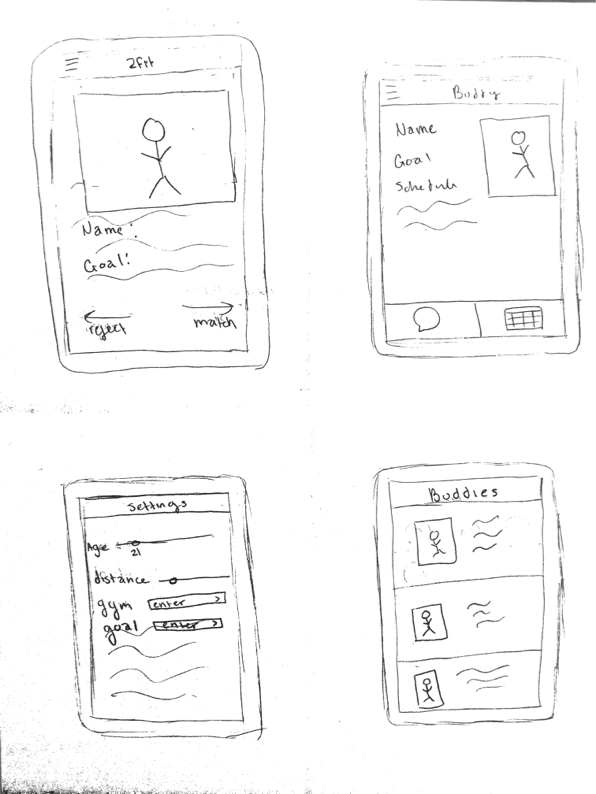 2fit
Name:
Goal:
reject
match
Buddy
Name
Goal
Schedule
Settings
Age
21
distance
gym enter >
goal enter >
Buddies